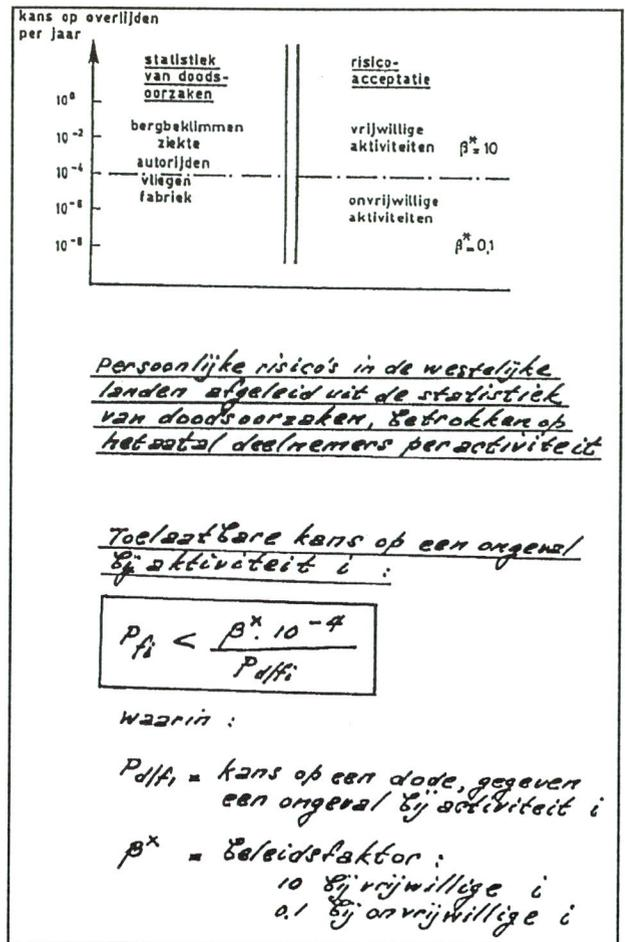 kans op overlijden
per jaar
statistiek
van doods-
oorzaken
risico-
acceptatie
10⁰
10⁻²
10⁻⁴
10⁻⁶
10⁻⁸
bergbeklimmen
ziekte
autorijden
vliegen
fabriek
vrijwillige
aktiviteiten β* = 10
onvrijwillige
aktiviteiten
β* = 0,1
Persoonlijke risico's in de westelijke
landen afgeleid uit de statistiek
van doodsoorzaken, betrokken op
het aatal deelnemers per activiteit
Toelaatbare kans op een ongeval
bij aktiviteit i :
P_fi < β*. 10⁻⁴ / P_d/fi
waarin :
P_d/fi = kans op een dode, gegeven
een ongeval bij activiteit i
β* = beleidsfaktor :
10 bij vrijwillige i
0.1 bij onvrijwillige i